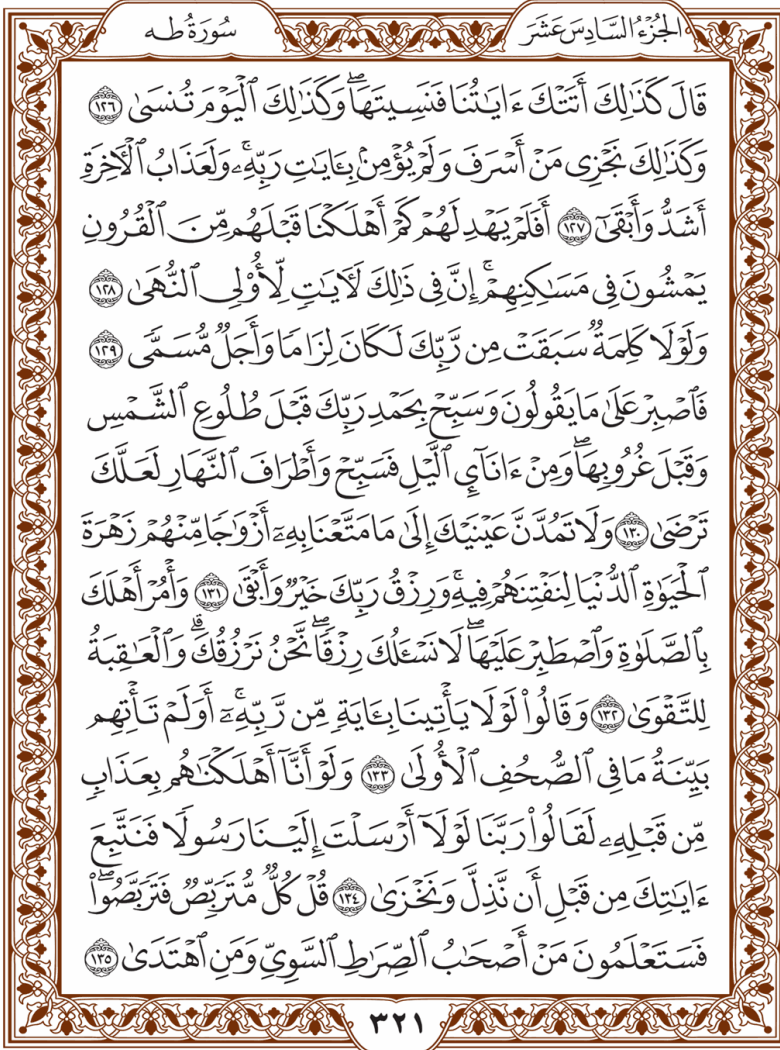 الجُزْءُ السَّادِسَ عَشَرَ
سُورَةُ طه
قَالَ كَذَٰلِكَ أَتَتْكَ ءَايَٰتُنَا فَنَسِيتَهَاۖ وَكَذَٰلِكَ ٱلْيَوْمَ تُنسَىٰ ١٢٦
وَكَذَٰلِكَ نَجْزِى مَنْ أَسْرَفَ وَلَمْ يُؤْمِنۢ بِـَٔايَٰتِ رَبِّهِۦۚ وَلَعَذَابُ ٱلْأٓخِرَةِ
أَشَدُّ وَأَبْقَىٰٓ ١٢٧ أَفَلَمْ يَهْدِ لَهُمْ كَمْ أَهْلَكْنَا قَبْلَهُم مِّنَ ٱلْقُرُونِ
يَمْشُونَ فِى مَسَٰكِنِهِمْۚ إِنَّ فِى ذَٰلِكَ لَأٓيَٰتٍ لِّأُو۟لِى ٱلنُّهَىٰ ١٢٨
وَلَوْلَا كَلِمَةٌ سَبَقَتْ مِن رَّبِّكَ لَكَانَ لِزَامًا وَأَجَلٌ مُّسَمًّى ١٢٩
فَٱصْبِرْ عَلَىٰ مَا يَقُولُونَ وَسَبِّحْ بِحَمْدِ رَبِّكَ قَبْلَ طُلُوعِ ٱلشَّمْسِ
وَقَبْلَ غُرُوبِهَاۖ وَمِنْ ءَانَآئِ ٱلَّيْلِ فَسَبِّحْ وَأَطْرَافَ ٱلنَّهَارِ لَعَلَّكَ
تَرْضَىٰ ١٣٠ وَلَا تَمُدَّنَّ عَيْنَيْكَ إِلَىٰ مَا مَتَّعْنَا بِهِۦٓ أَزْوَٰجًا مِّنْهُمْ زَهْرَةَ
ٱلْحَيَوٰةِ ٱلدُّنْيَا لِنَفْتِنَهُمْ فِيهِۚ وَرِزْقُ رَبِّكَ خَيْرٌ وَأَبْقَىٰ ١٣١ وَأْمُرْ أَهْلَكَ
بِٱلصَّلَوٰةِ وَٱصْطَبِرْ عَلَيْهَاۖ لَا نَسْـَٔلُكَ رِزْقًاۖ نَّحْنُ نَرْزُقُكَۗ وَٱلْعَٰقِبَةُ
لِلتَّقْوَىٰ ١٣٢ وَقَالُوا۟ لَوْلَا يَأْتِينَا بِـَٔايَةٍ مِّن رَّبِّهِۦٓۚ أَوَلَمْ تَأْتِهِم
بَيِّنَةُ مَا فِى ٱلصُّحُفِ ٱلْأُولَىٰ ١٣٣ وَلَوْ أَنَّآ أَهْلَكْنَٰهُم بِعَذَابٍ
مِّن قَبْلِهِۦ لَقَالُوا۟ رَبَّنَا لَوْلَآ أَرْسَلْتَ إِلَيْنَا رَسُولًا فَنَتَّبِعَ
ءَايَٰتِكَ مِن قَبْلِ أَن نَّذِلَّ وَنَخْزَىٰ ١٣٤ قُلْ كُلٌّ مُّتَرَبِّصٌ فَتَرَبَّصُوا۟ۖ
فَسَتَعْلَمُونَ مَنْ أَصْحَٰبُ ٱلصِّرَٰطِ ٱلسَّوِىِّ وَمَنِ ٱهْتَدَىٰ ١٣٥
٣٢١